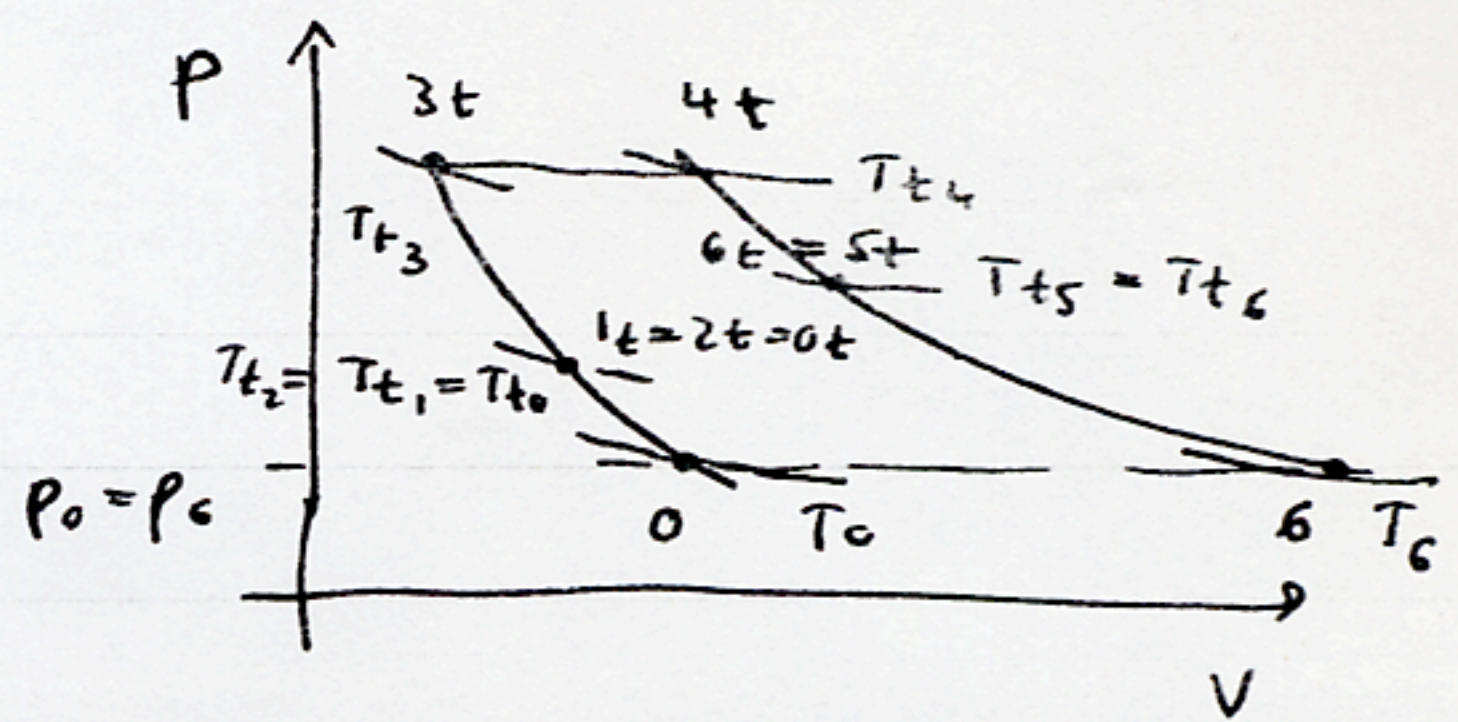 P
3t
4t
Tt4
Tt3
6t = 5t
Tt5 = Tt6
1t = 2t = 0t
Tt2 = Tt1 = Tt0
P0 = P6
0
T0
6
T6
V